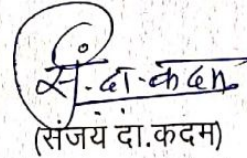 सं.दा.कदम
(संजय दा.कदम)